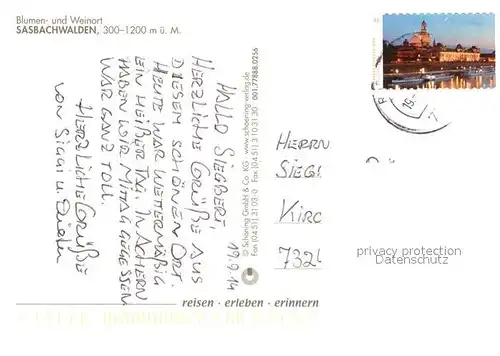 Blumen- und Weinort
SASBACHWALDEN, 300–1200 m ü. M.
19.9.14
HALLO SIEGBERT,
HERZLICHE GRÜßE AUS
DIESEM SCHÖNEN ORT.
HEUTE WAR WETTERMÄßIG
EIN HEIßER TAG. IN ACHERN
HABEN WIR MITTAG GEGESSEN
WAR GANZ TOLL.
HERZLICHE GRÜßE
von Siggi u.
© Schöning GmbH & Co. KG · www.schoening-verlag.de
Fax (0451) 3103-0 Fax (0451) 310 31 30 001/7788.0256
HERRN
SIEG
KIRC
732
privacy protection
Datenschutz
reisen · erleben · erinnern